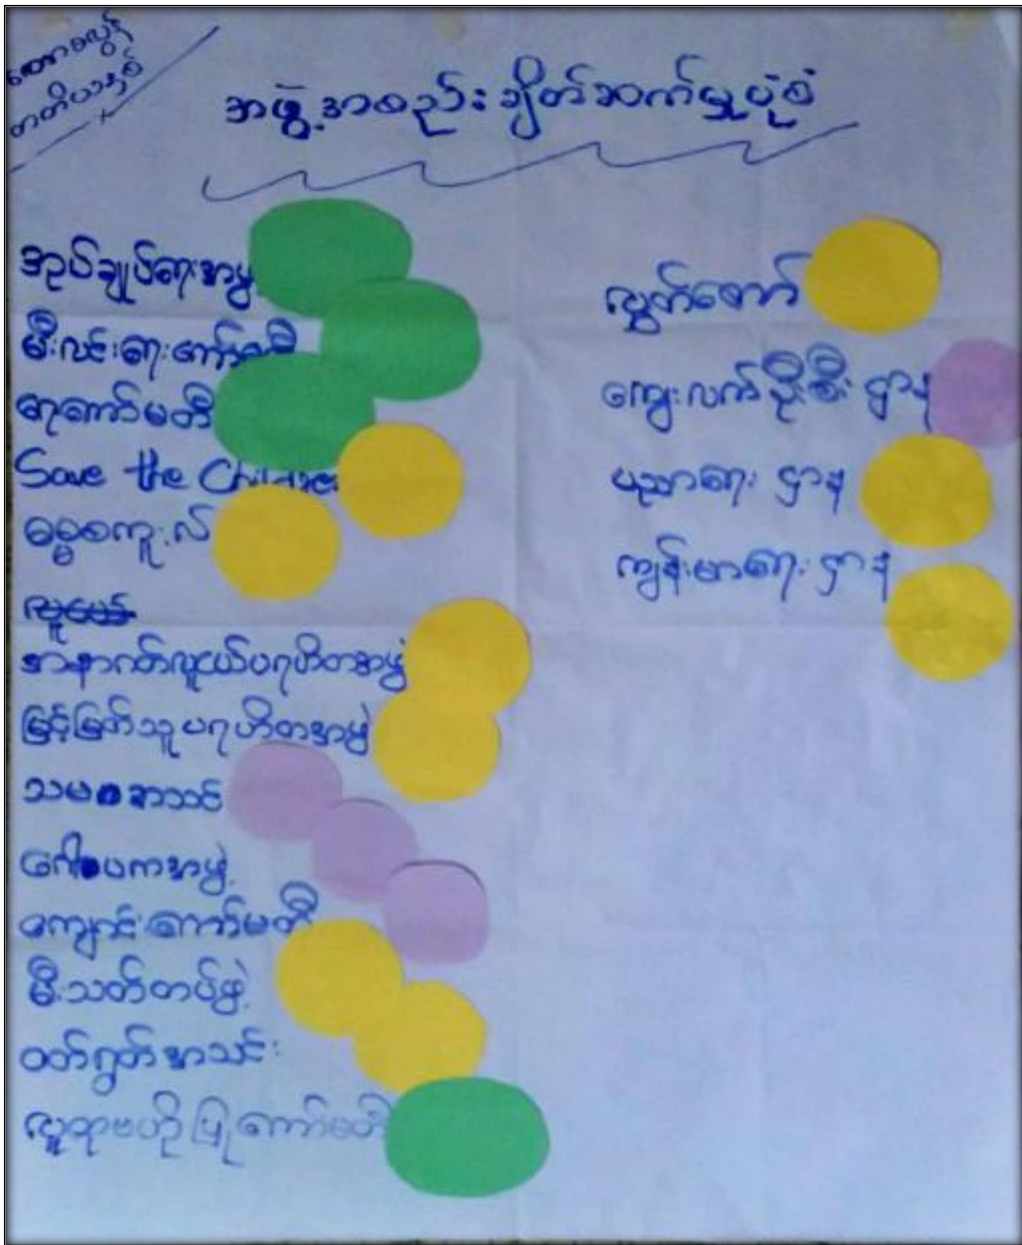 တောစလွန်
တတိယနှစ်
အဖွဲ့အစည်းချိတ်ဆက်မှုပုံစံ
အုပ်ချုပ်ရေးအဖွဲ့
မီးလင်းရေးကော်မတီ
ရေကော်မတီ
Save the Children
ဓမ္မစကူးလ်
အာနာဂတ်လူငယ်ပရဟိတအဖွဲ့
မြင့်မြတ်သူပရဟိတအဖွဲ့
သမဝါယမ
ဂေါပကအဖွဲ့
ကျောင်းကော်မတီ
မီးသတ်တပ်ဖွဲ့
ဝတ်ရွတ်အသင်း
လူထုဗဟိုပြုကော်မတီ
လွှတ်တော်
ကျေးလက်ဦးစီးဌာန
ပညာရေးဌာန
ကျန်းမာရေးဌာန